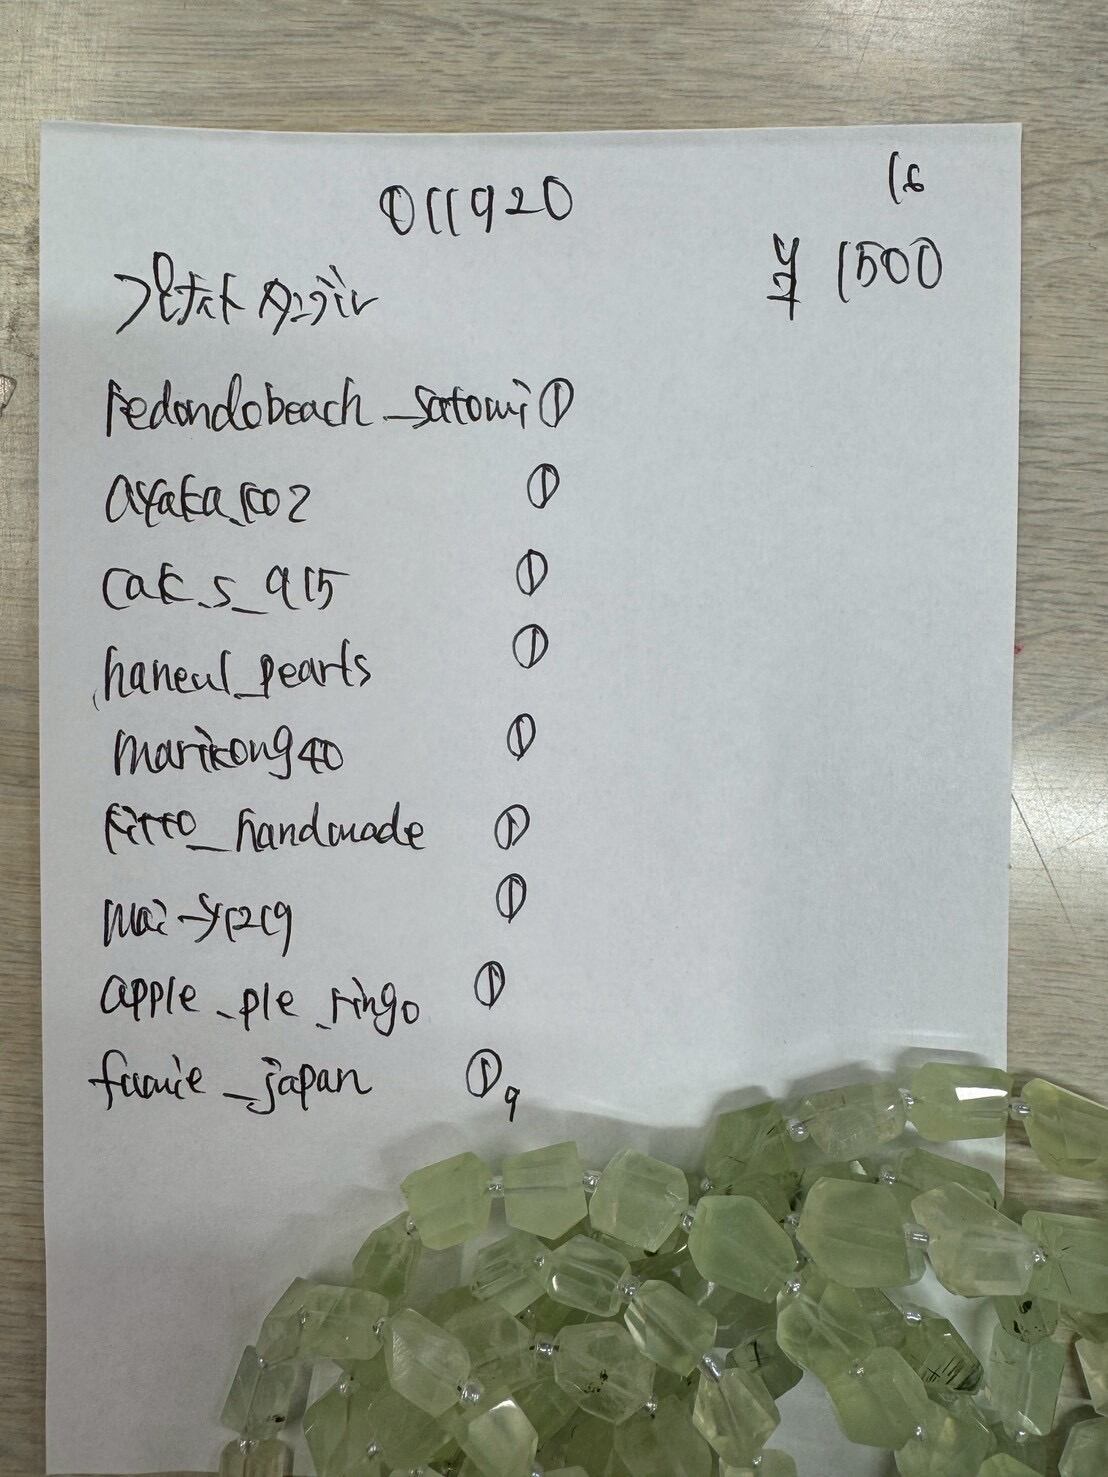 011920
16
¥ 1500
redondobeach_satomi ①
ayaka.co2 ①
cak.s_915 ①
haneul_pearls ①
marikong40 ①
kitto_handmade ①
mai_y1219 ①
apple_pie_ringo ①
fumie_japan ① 9